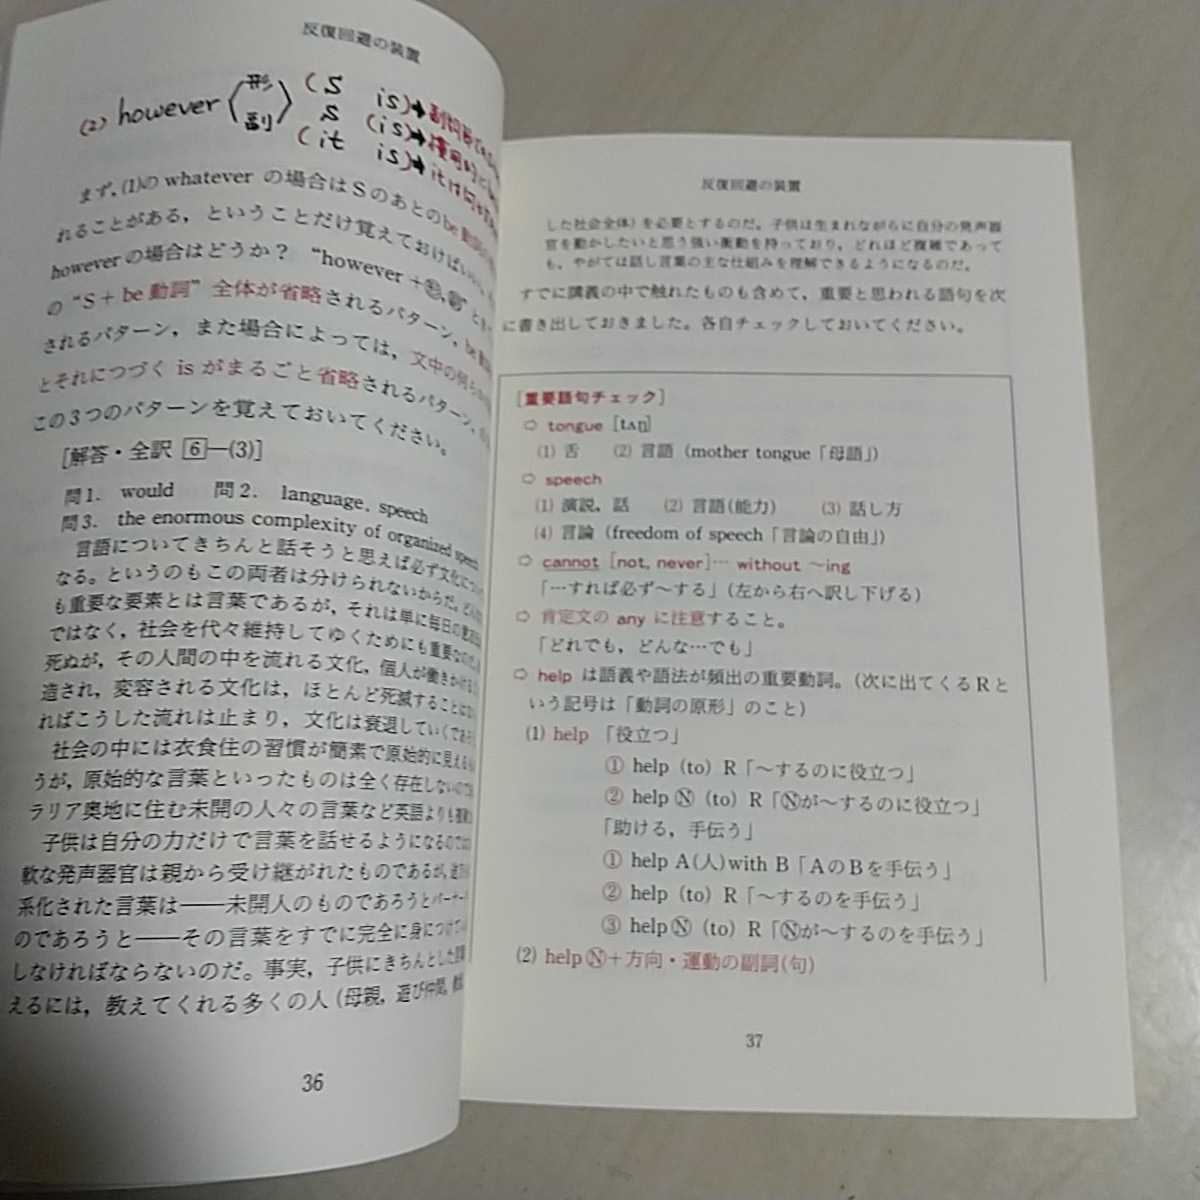 反復回避の装置
(2) however 〈形 副〉 (S is)→副詞節で
S (is)→慣用的に
(it is)→itは何か
まず，(1)の whatever の場合はSのあとのbe動詞
れることがある，ということだけ覚えておけばいい。
however の場合はどうか？ “however＋形,副”と
の “S＋be動詞” 全体が省略されるパターン，be動詞
されるパターン，また場合によっては，文中の何
とそれにつづく is がまるごと省略されるパターン，
この3つのパターンを覚えておいてください。
[解答・全訳 6—(3)]
問1. would 問2. language, speech
問3. the enormous complexity of organized speech
言語についてきちんと話そうと思えば必ず文化につ
なる。というのもこの両者は分けられないからだ。
も重要な要素とは言葉であるが，それは単に毎日の
ではなく，社会を代々維持してゆくためにも重要な
死ぬが，その人間の中を流れる文化，個人が働きかけ
造され，変容される文化は，ほとんど死滅することは
ればこうした流れは止まり，文化は衰退していくであろ
社会の中には衣食住の習慣が簡素で原始的に見える
うが，原始的な言葉といったものは全く存在しない
ラリア奥地に住む未開の人々の言葉など英語よりも
子供は自分の力だけで言葉を話せるようになるのでは
軟な発声器官は親から受け継がれたものであるが，
系化された言葉は——未開人のものであろうと
のであろうと——その言葉をすでに完全に身につけて
しなければならないのだ。事実，子供にきちんとした
えるには，教えてくれる多くの人（母親，遊び仲間，
36
反復回避の装置
した社会全体）を必要とするのだ。子供は生まれながらに自分の発声器
官を動かしたいと思う強い衝動を持っており，どれほど複雑であって
も，やがては話し言葉の主な仕組みを理解できるようになるのだ。
すでに講義の中で触れたものも含めて，重要と思われる語句を次
に書き出しておきました。各自チェックしておいてください。
[重要語句チェック]
⇨ tongue [tʌŋ]
(1) 舌 (2) 言語（mother tongue「母語」）
⇨ speech
(1) 演説，話 (2) 言語(能力) (3) 話し方
(4) 言論（freedom of speech「言論の自由」）
⇨ cannot [not, never]… without ～ing
「…すれば必ず～する」（左から右へ訳し下げる）
⇨ 肯定文の any に注意すること。
「どれでも，どんな…でも」
⇨ help は語義や語法が頻出の重要動詞。（次に出てくるRと
いう記号は「動詞の原形」のこと）
(1) help 「役立つ」
① help (to) R「～するのに役立つ」
② help Ⓝ (to) R「Ⓝが～するのに役立つ」
「助ける，手伝う」
① help A(人)with B「AのBを手伝う」
② help (to) R「～するのを手伝う」
③ help Ⓝ (to) R「Ⓝが～するのを手伝う」
(2) help Ⓝ＋方向・運動の副詞(句)
37